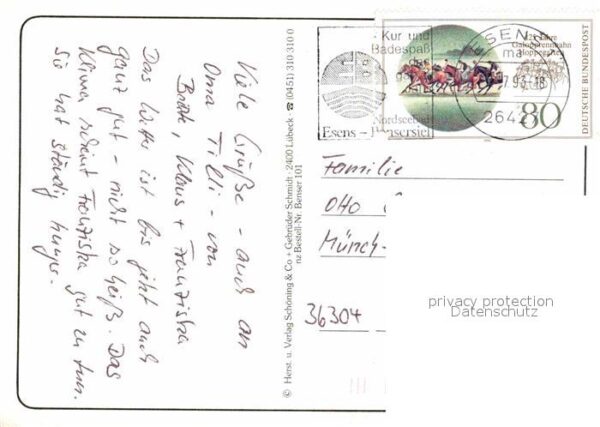 Viele Grüße - auch an
Oma Tilli - von
Beate, Klaus + Franziska
Das Wetter ist bis jetzt auch
ganz gut - nicht so heiß. Das
Klima scheint Franziska gut zu tun.
Sie hat ständig Hunger.
© Herst. u. Verlag Schöning & Co + Gebrüder Schmidt · 2400 Lübeck · ☎ (0451) 310 310 0
nz Bestell-Nr. Benser 101
Kur und
Badespaß
Nordseebad
Esens - Bensersiel
ESENS
2642
Jahre
Galopprennbahn
Hoppegarten
80
DEUTSCHE BUNDESPOST
Familie
Otto
Münch-
36304
privacy protection
Datenschutz